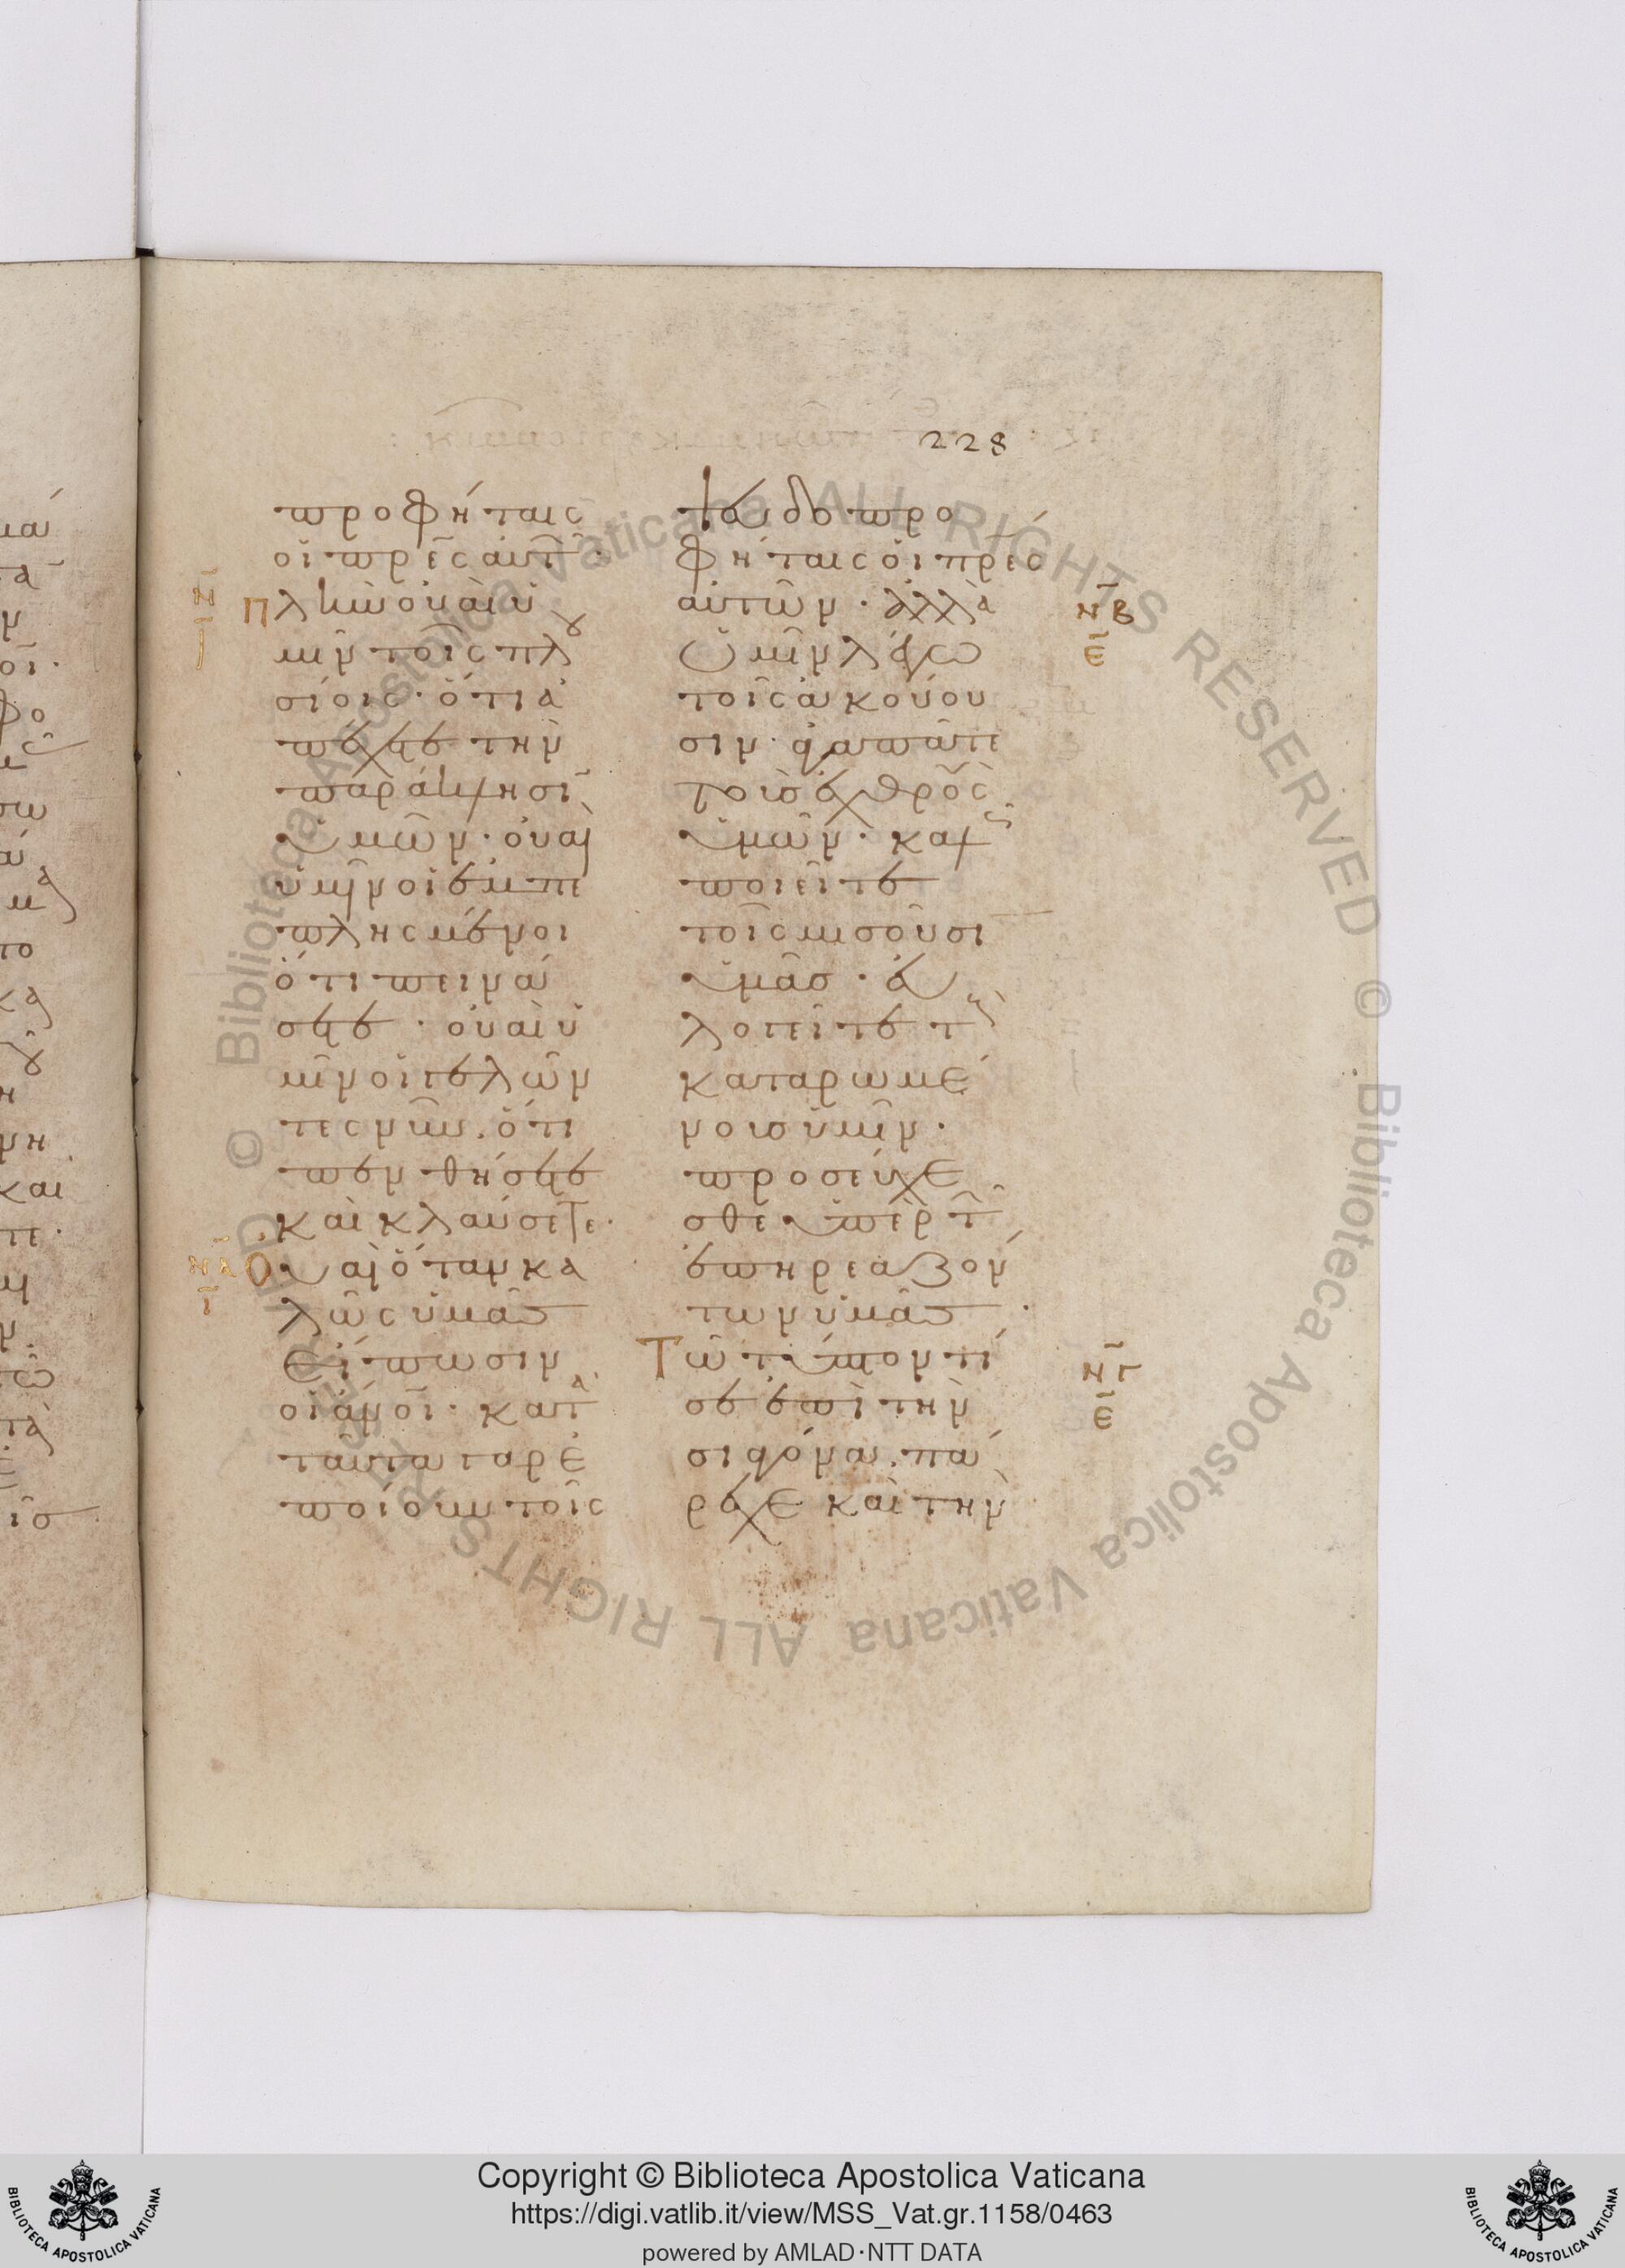 228
προφήταις
οἱ πρ̅ες αὐτῶ̅·
Πλὴν οὐαὶ ὑ
μῖν τοῖς πλου
σίοις· ὅτι ἀ
πέχετε τὴν
παράκλησῑ
ὑμῶν· οὐαὶ
ὑμῖν οἱ ἐμπε
πλησμένοι
ὅτι πεινά
σετε· οὐαὶ ὑ
μῖν οἱ γελῶν
τες νῦν. ὅτι
πενθήσετε
καὶ κλαύσετε·
Οὐαὶ ὅταν κα
λῶς ὑμᾶς
εἴπωσιν
οἱ ἄν̅οι· κατὰ
ταῦτα γὰρ ἐ
ποίουν τοῖς
ψευδοπρο
φήταις οἱ πρ̅ες
αὐτῶν· ἀλλὰ
ὑμῖν λέγω
τοῖς ἀκούου
σιν· ἀγαπᾶτε
τοὺς ἐχθροὺς
ὑμῶν· καλῶς
ποιεῖτε
τοῖς μισοῦσι
ὑμᾶς· εὐ
λογεῖτε τοὺς
καταρωμέ
νους ὑμῖν·
προσεύχε
σθε ὑπὲρ τῶ̅
ἐπηρεαζόν
των ὑμᾶς·
Τῶ τύπτοντί
σε ἐπὶ τὴν
σιαγόνα. πά
ρεχε καὶ τὴν
Ν̅
Ι̅
Ν̅Α
Ι̅
Ν̅Β
Ε̅
Ν̅Γ
Ε̅
Copyright © Biblioteca Apostolica Vaticana
https://digi.vatlib.it/view/MSS_Vat.gr.1158/0463
powered by AMLAD·NTT DATA
BIBLIOTECA APOSTOLICA VATICANA
BIBLIOTECA APOSTOLICA VATICANA
© Biblioteca Apostolica Vaticana ALL RIGHTS RESERVED © Biblioteca Apostolica Vaticana ALL RIGHTS RESERVED